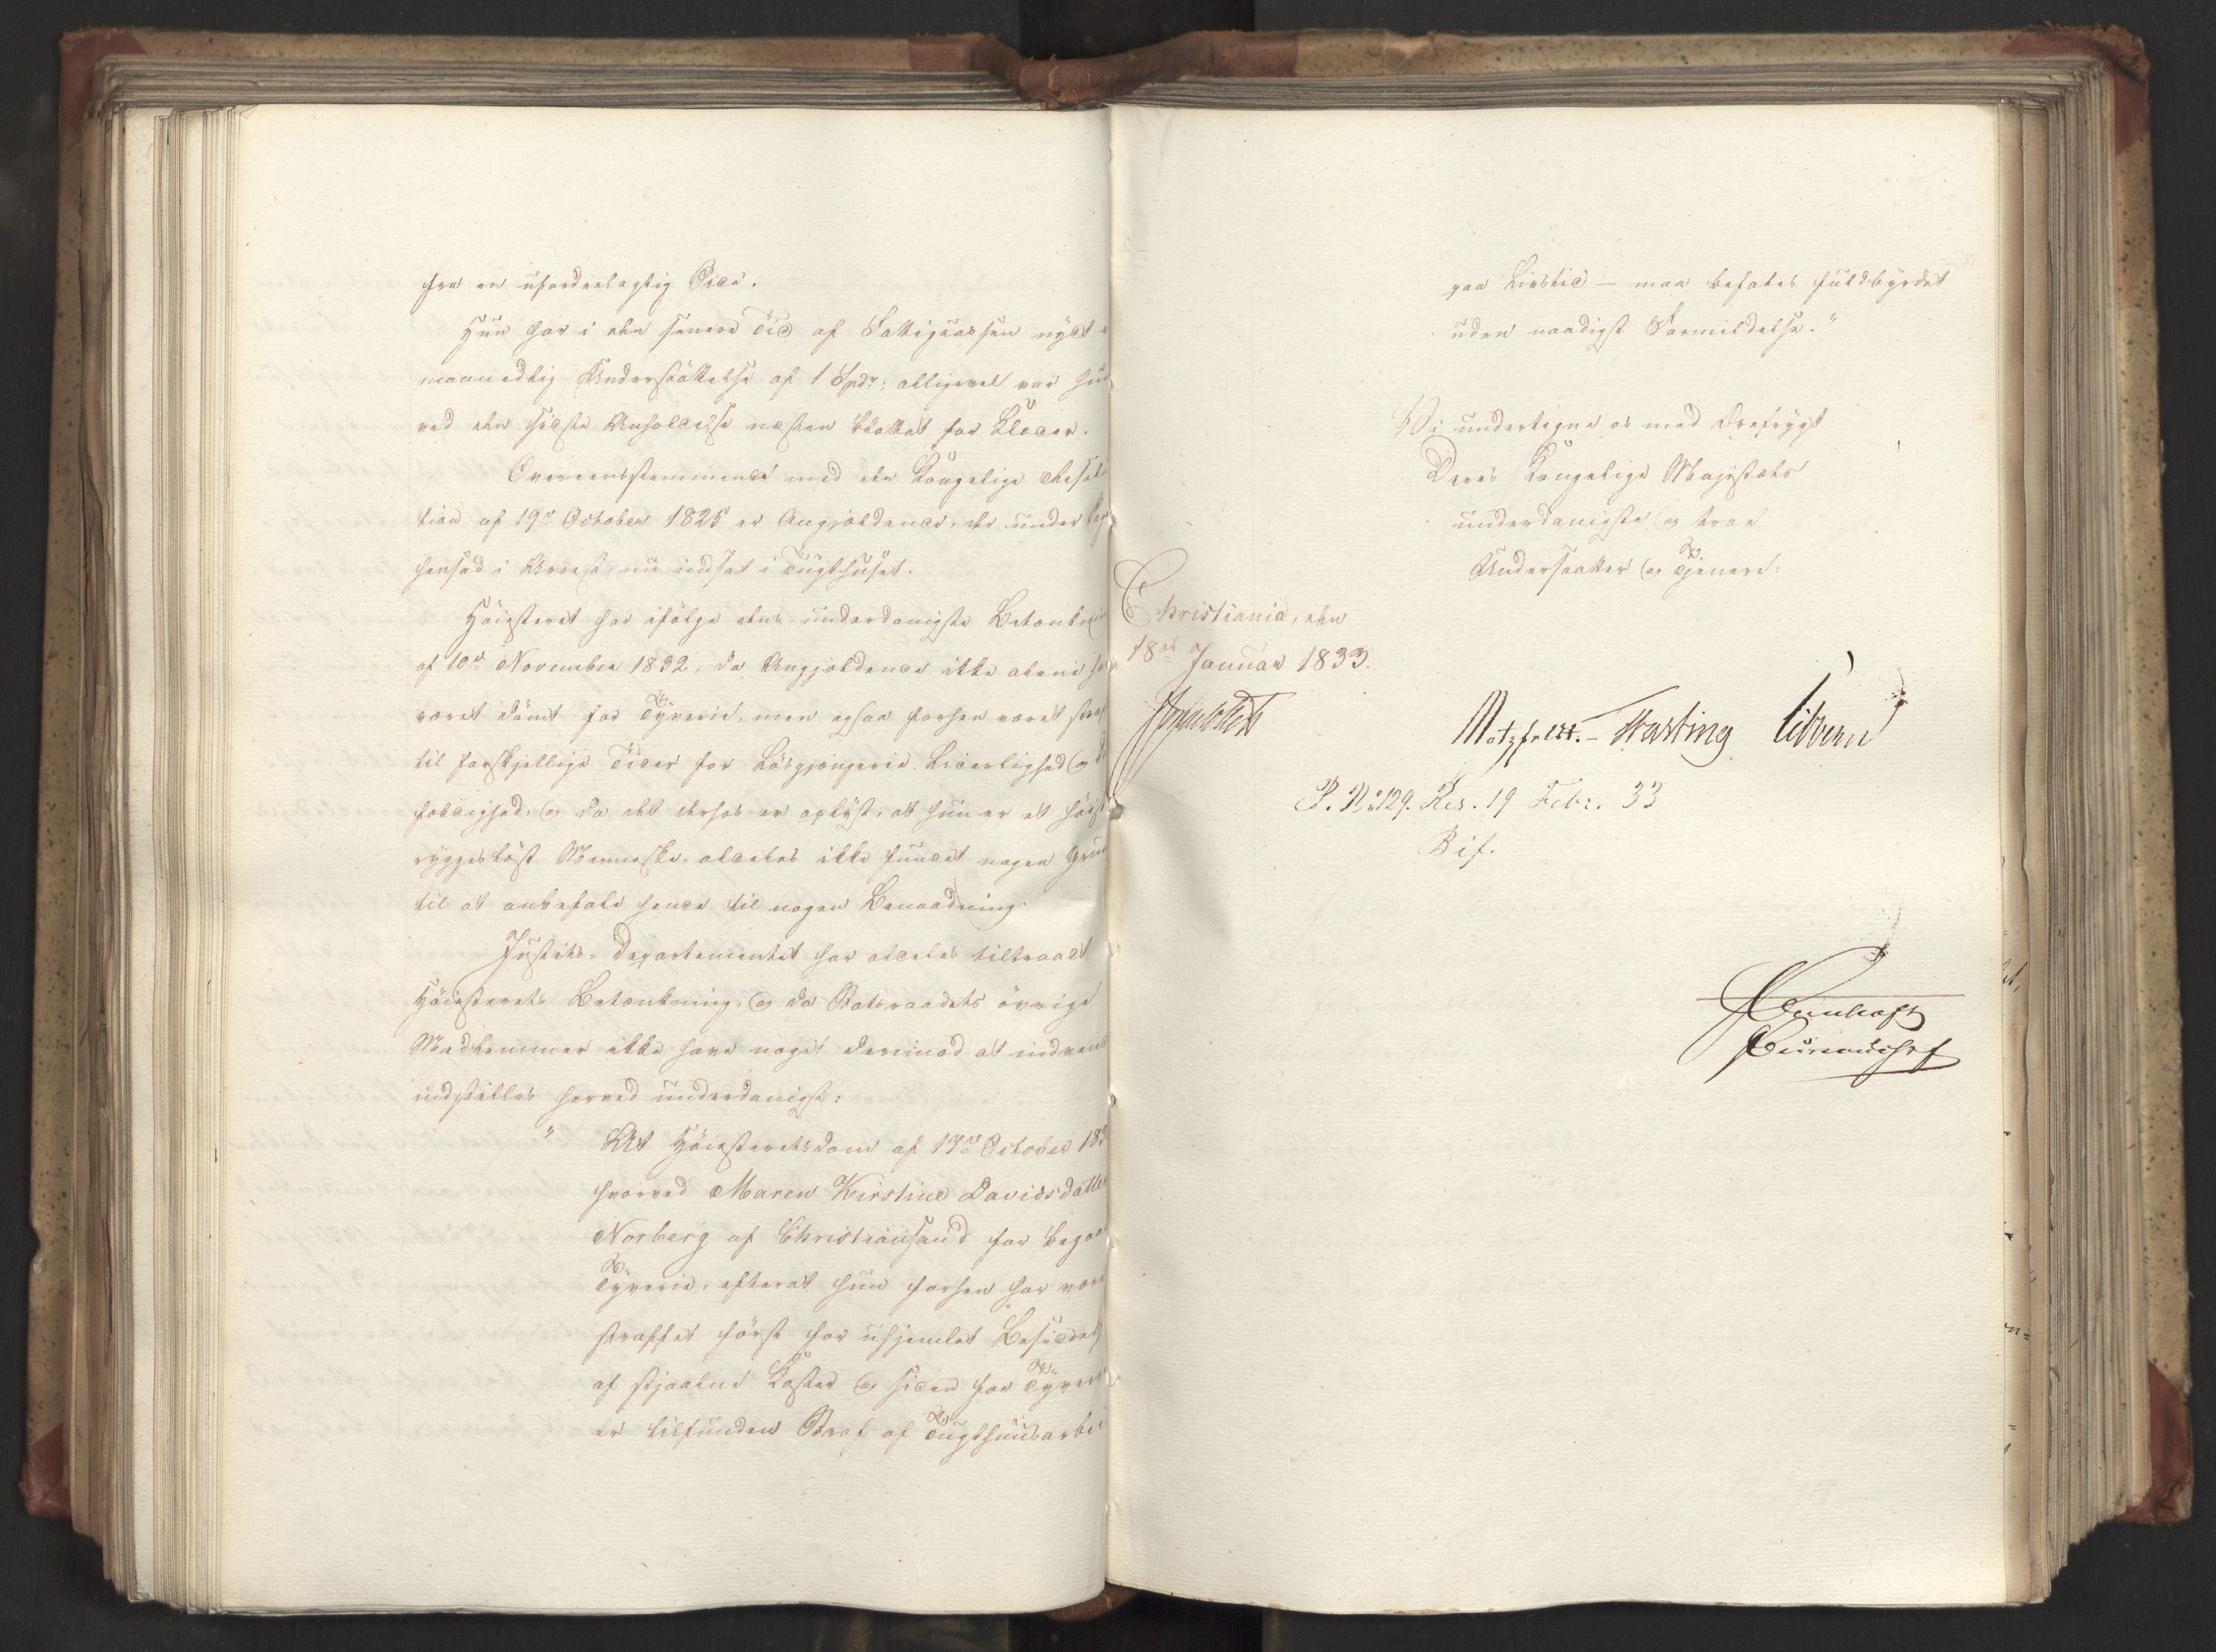 fra en ufordeelagtig Side.
Hun har i den senere Tid af Fattigkassen nydt
maanedlig Understøttelse af 1 Spdr; alligevel var hun
ved den sidste Anholdelse næsten blottet for Klæder.
Overeensstemmende med den Kongelige Resolu
tion af 19de October 1825 er Angjeldende, der under Sagen
hensad i Arrest, nu indsat i Tugthuset.
Høiesteret har ifølge dens underdanigste Betænkning
af 10de November 1832, da Angjeldende ikke alene har
været dømt for Tyverie, men ogsaa forhen været straffet
til forskjellige Tider for Løsgjængerie, Liderlighed og
foldighed, og da det derhos er oplyst, at hun er et høist
ryggesløst Menneske, aldeles ikke fundet nogen Grund
til at anbefale hende til nogen Benaadning.
Justits-Departementet har aldeles tiltraadt
Høiesterets Betænkning, og da Statsraadets øvrige
Medlemmer ikke have noget derimod at indvende
indstilles herved underdanigst:
" At Høiesteretsdom af 17de October 183
hvorved Maren Kirstine Davidsdatter
Norberg af Christiansand for begaaet
Tyverie, efterat hun forhen har været
straffet først for uhjemlet Besiddelse
af stjaalne Koster og siden for Tyverie
er tilfunden Straf af Tugthuusarbeide
paa Livstid – maa befales fuldbyrdet
uden naadigst Formildelse."
Vi undertegne os med Ærefrygt
Deres Kongelige Majestæts
underdanigste og troe
Undersaatter og Tjenere:
Christiania, den
18de Januar 1833.
Motzfeldt. – Fasting Sibbern
P. No 129. Res. 19 Febr. 33
Bif.